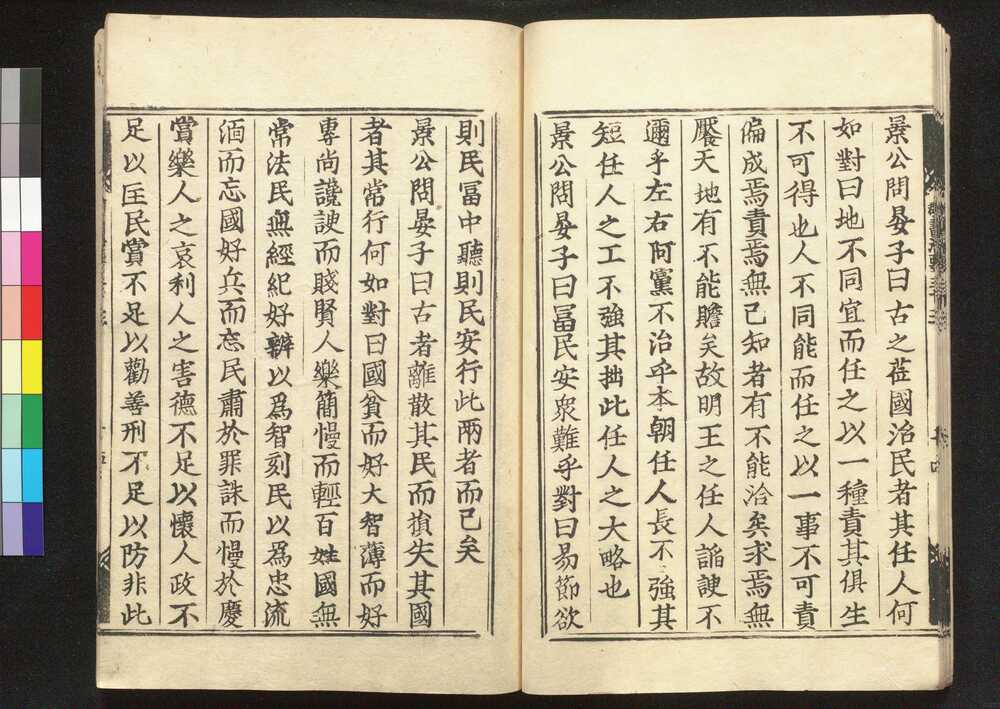 景公問晏子曰古之莅國治民者其任人何
如對曰地不同宜而任之以一種責其俱生
不可得也人不同能而任之以一事不可責
偏成焉責焉無已知者有不能洽矣求焉無
饜天地有不能贍矣故明王之任人謟諛不
邇乎左右阿黨不治乎本朝任人長不強其
短任人之工不強其拙此任人之大略也
景公問晏子曰冨民安衆難乎對曰易節欲
則民冨中聽則民安行此兩者而已矣
景公問晏子曰古者離散其民而損失其國
者其常行何如對曰國貧而好大智薄而好
專尚讒諛而賤賢人樂簡慢而輕百姓國無
常法民無經紀好辨以爲智刻民以爲忠流
湎而忘國好兵而忘民肅於罪誅而慢於慶
賞樂人之哀利人之害德不足以懷人政不
足以匡民賞不足以勸善刑不足以防非此